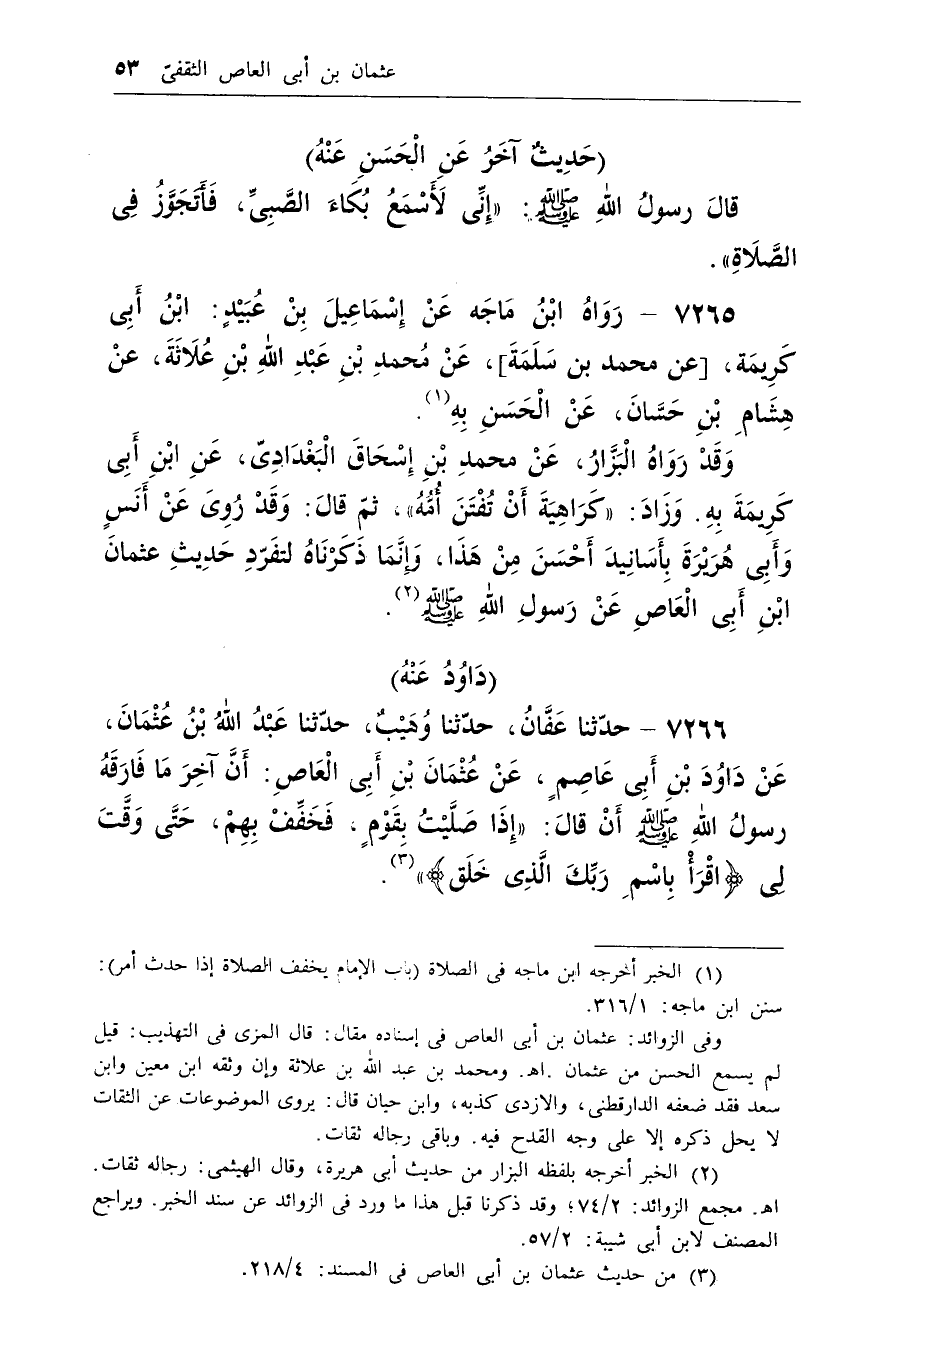 عثمان بن أبى العاص الثقفىّ ٥٣
(حَدِيثٌ آخَرُ عَنِ الْحَسَنِ عَنْهُ)
قالَ رسولُ اللهِ ﷺ: «إنِّى لَأَسْمَعُ بُكَاءَ الصَّبِىِّ، فَأَتَجَوَّزُ فِى
الصَّلَاةِ».
٧٢٦٥ – رَوَاهُ ابْنُ مَاجَه عَنْ إسْمَاعِيلَ بِنْ عُبَيْدٍ: ابْنُ أَبِى
كَرِيمَة، [عن محمد بن سَلَمَةَ]، عَنْ مُحمدِ بْنِ عَبْدِ اللهِ بْنِ عُلَاثَةَ، عنْ
هِشَامِ بْنِ حَسَّانَ، عَنْ الْحَسَنِ بِهِ(١).
وَقَدْ رَوَاهُ الْبَزَّارُ، عَنْ محمدِ بْنِ إسْحَاقَ الْبَغْدَادِىّ، عَنِ ابْنِ أَبِى
كَرِيمَةَ بِهِ. وَزَادَ: «كَرَاهِيَةَ أَنْ تُفْتَنَ أُمُّهُ»، ثمّ قالَ: وَقَدْ رُوِىَ عَنْ أَنَسٍ
وَأَبِى هُرَيْرَةَ بِأَسَانِيدَ أَحْسَنَ مِنْ هَذَا، وَإنَّمَا ذَكَرْنَاهُ لتفَرّدِ حَدِيثِ عثمانَ
ابْنِ أَبِى الْعَاصِ عَنْ رَسولِ اللهِ ﷺ(٢).
(دَاوُدُ عَنْهُ)
٧٢٦٦ – حدّثنا عَفَّانُ، حدّثنا وُهَيْبٌ، حدّثنا عَبْدُ اللهُ بْنُ عُثْمَانَ،
عَنْ دَاوُدَ بْنِ أَبِى عَاصِمٍ، عَنْ عُثْمَانَ بْنِ أَبِى الْعَاصِ: أَنَّ آخِرَ مَا فَارَقَهُ
رسولُ اللهِ ﷺ أَنْ قالَ: «إذَا صَلَّيْتُ بِقَوْمٍ، فَخَفِّفْ بِهِمْ، حَتَّى وَقَّتَ
لِى ﴿اقْرَأْ بِاسْمِ رَبِّكَ الَّذِى خَلَق﴾»(٣).
(١) الخبر أخرجه ابن ماجه فى الصلاة (باب الإمام يخفف الصلاة إذا حدث أمر):
سنن ابن ماجه: ٣١٦/١.
وفى الزوائد: عثمان بن أبى العاص فى إسناده مقال: قال المزى فى التهذيب: قيل
لم يسمع الحسن من عثمان .اهـ. ومحمد بن عبد الله بن علاثة وإن وثقه ابن معين وابن
سعد فقد ضعفه الدارقطنى، والازدى كذبه، وابن حيان قال: يروى الموضوعات عن الثقات
لا يحل ذكره إلا على وجه القدح فيه. وباقى رجاله ثقات.
(٢) الخبر أخرجه بلفظه البزار من حديث أبى هريرة، وقال الهيثمى: رجاله ثقات.
اهـ. مجمع الزوائد: ٧٤/٢؛ وقد ذكرنا قبل هذا ما ورد فى الزوائد عن سند الخبر. ويراجع
المصنف لابن أبى شيبة: ٥٧/٢.
(٣) من حديث عثمان بن أبى العاص فى المسند: ٢١٨/٤.